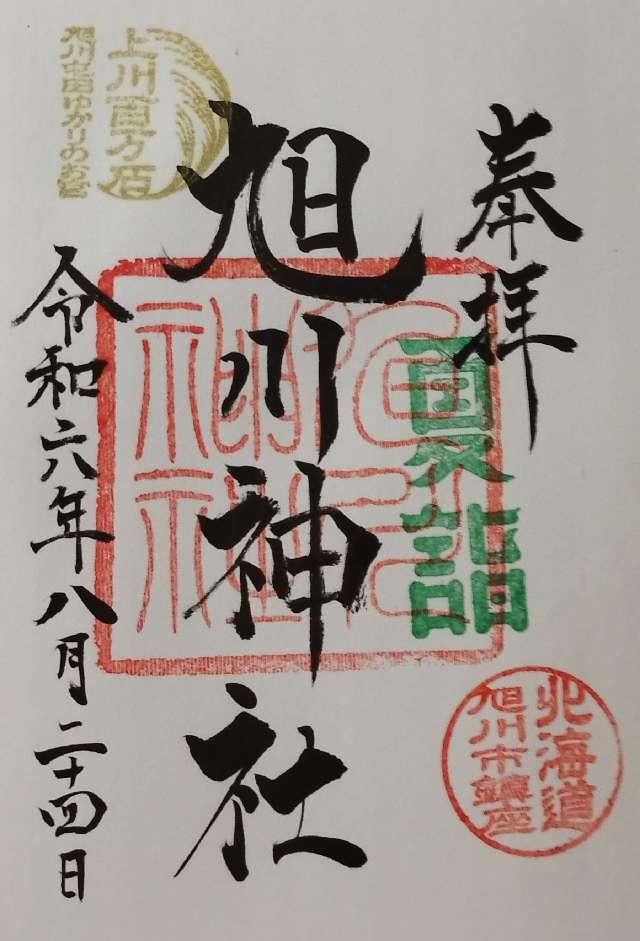 奉拝
夏詣
旭川神社
旭川神社
北海道
旭川市鎮座
上川百万石
旭川屯田ゆかりのお宮
令和六年八月二十四日